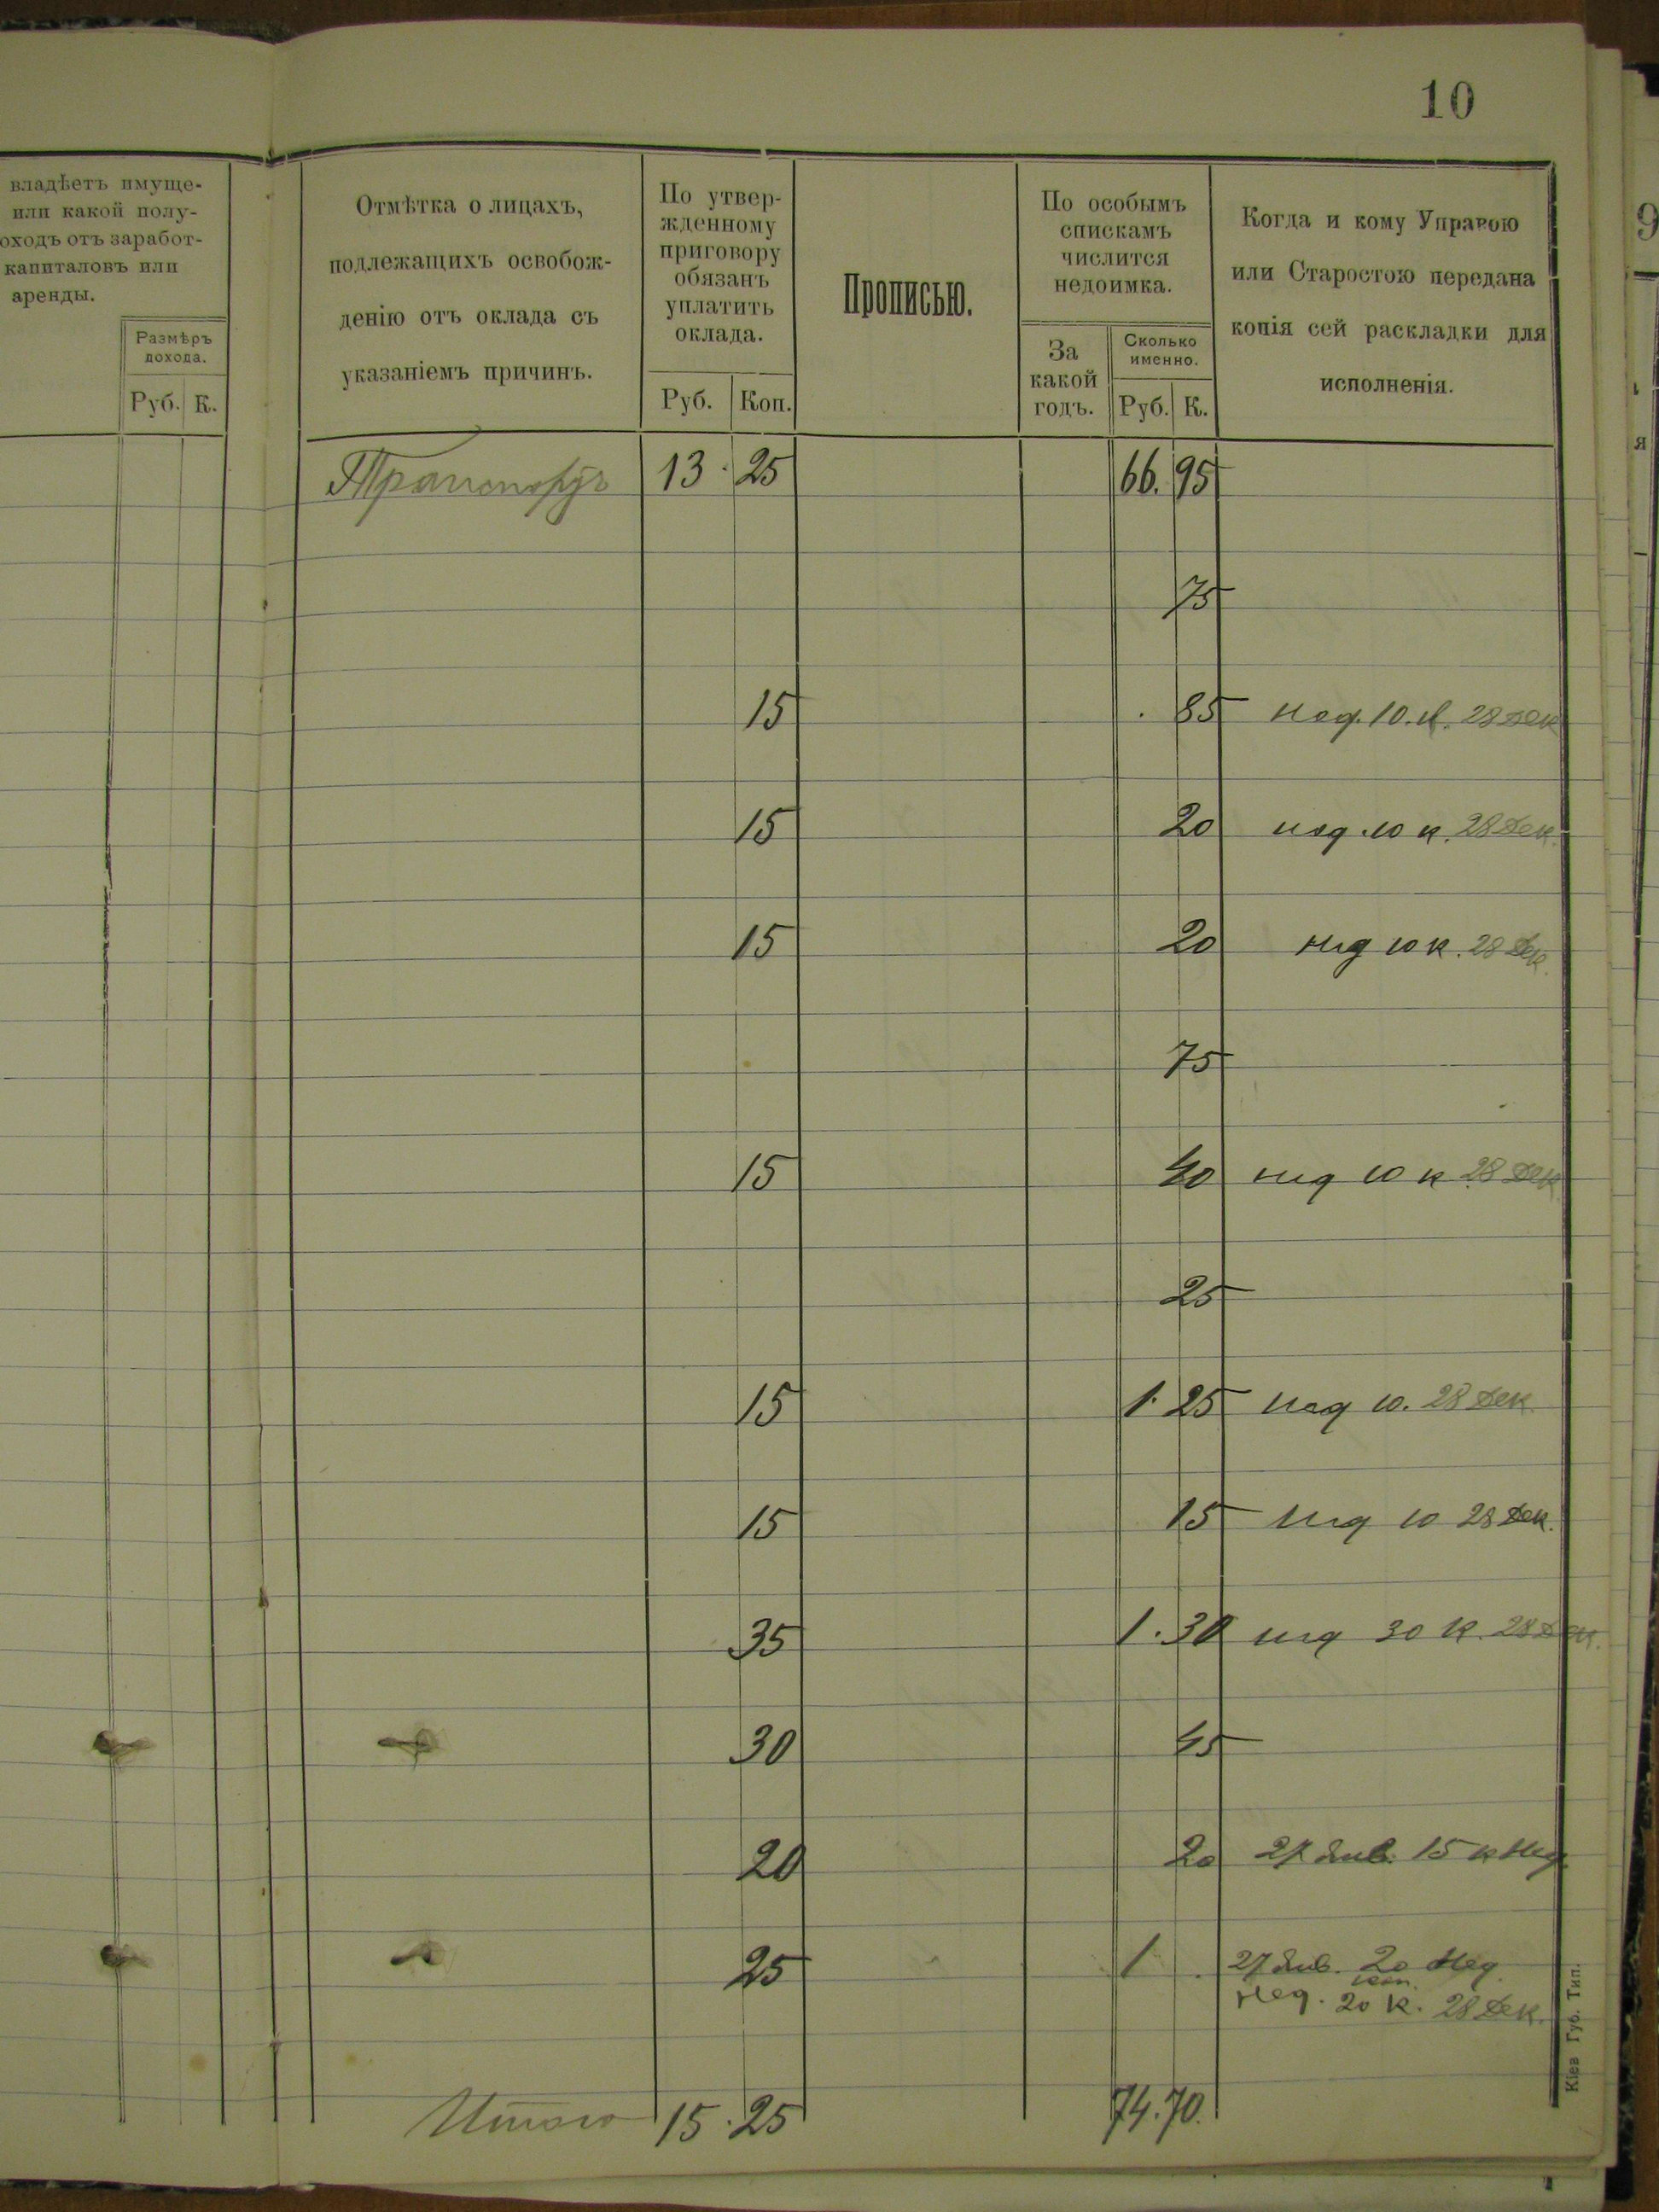 10
владѣетъ имуще-
или какой полу-
оходъ отъ заработ-
капиталовъ или
аренды.
Размѣръ
дохода.
Руб. К.
Отмѣтка о лицахъ,
подлежащихъ освобож-
денію отъ оклада съ
указаніемъ причинъ.
По утвер-
жденному
приговору
обязанъ
уплатить
оклада.
Руб. Коп.
Прописью.
По особымъ
спискамъ
числится
недоимка.
За
какой
годъ.
Сколько
именно.
Руб. К.
Когда и кому Управою
или Старостою передана
копія сей раскладки для
исполненія.
9
я
Транспортъ 13 · 25 66. 95
75
15 85 нед. 10. к. 28 Дек
15 20 нед. 10 к. 28 Дек.
15 20 нед 10 к. 28 Дек.
75
15 40 нед 10 к 28 Дек
25
15 1· 25 нед 10. 28 Дек.
15 15 нед 10 28 Дек.
35 1 · 30 нед 30 к. 28 Дек.
30 45
20 20 27 Янв. 15 к Нед.
25 1 27 Янв. 20 коп. Нед.
Нед. 20 к. 28 Дек.
Итого 15 · 25 74. 70.
Кіев Губ. Тип.